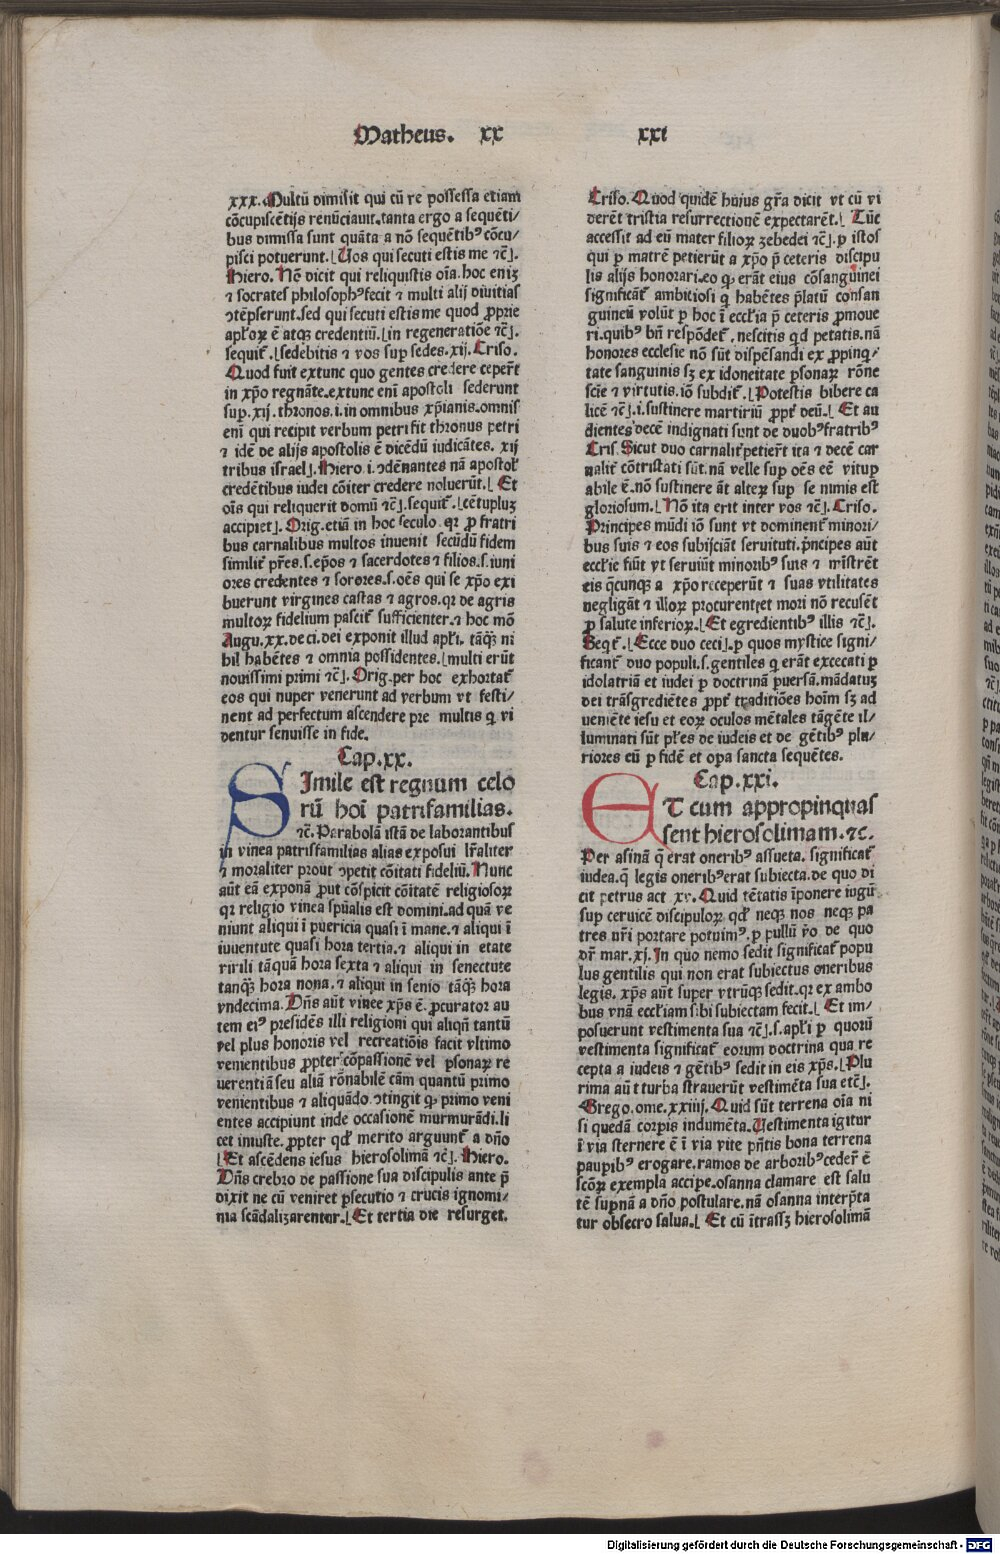 Matheus. xx xxi
xxx. Multū dimisit qui cū re possessa etiam
cōcupiscētijs renūciauit. tanta ergo a sequēti/
bus dimissa sunt quāta a nō sequētibꝰ cōcu/
pisci potuerunt. ⌊Uos qui secuti estis me ⁊cͤ⌋.
Hiero. Nō dicit qui reliquistis oīa. hoc eniꝫ
⁊ socrates philosophꝰ fecit ⁊ multi alij diuitias
ꝯtēpserunt. sed qui secuti estis me quod ꝓprie
apl'oꝝ ē atqꝫ credentiū. ⌊in regeneratiōe ⁊cͤ⌋.
sequit᷑. ⌊sedebitis ⁊ vos sup sedes. xij. Criso.
Quod fuit extunc quo gentes credere ceper̄t
in xp̄o regnāte. extunc enī apostoli sederunt
sup. xij. thronos. i. in omnibus xp̄ianis. omnis
enī qui recipit verbum petri fit thronus petri
⁊ idē de alijs apostolis ē dicēdū iudicātes. xij
tribus israel⌋. Hiero. i. ꝯdēnantes nā apostol'
credētibus iudei cōiter credere noluerūt. ⌊Et
oīs qui reliquerit domū ⁊cͤ⌋. sequit᷑. ⌊cētupluꝫ
accipiet⌋. Orig. etiā in hoc seculo. qꝛ ꝓ fratri
bus carnalibus multos inuenit secūdū fidem
similit᷑ pr̄es. s. ep̄os ⁊ sacerdotes ⁊ filios. s. iuni
ores credentes ⁊ sorores. s. oēs qui se xp̄o exi
buerunt virgines castas ⁊ agros. qꝛ de agris
multoꝝ fidelium pascit᷑ sufficienter. ⁊ hoc mō
Augu. xx. de ci. dei exponit illud apl'i. tāqꝫ ni
hil habētes ⁊ omnia possidentes. ⌊multi erūt
nouissimi primi ⁊cͤ⌋. Orig. per hoc exhortat᷑
eos qui nuper venerunt ad verbum vt festi/
nent ad perfectum ascendere pre multis q̄ vi
dentur senuisse in fide.
Cap. xx.
SImile est regnum celo
rū hoī patrifamilias.
⁊c. Parabolā istā de laborantibus
in vinea patrisfamilias alias exposui lr̄aliter
⁊ moraliter prout ꝯpetit cōitati fideliū. Nunc
aūt eā exponā ꝓut cōspicit cōitatē religiosoꝝ
qꝛ religio vinea sp̄ualis est domini. ad quā ve
niunt aliqui ī puericia quasi ī mane. ⁊ aliqui ī
iuuentute quasi hora tertia. ⁊ aliqui in etate
virili tāquā hora sexta ⁊ aliqui in senectute
tanqꝫ hora nona. ⁊ aliqui in senio tāqꝫ hora
vndecima. Dn̄s aūt vinee xp̄s ē. ꝓcurator au
tem eiꝰ presidēs illi religioni qui aliqn̄ tantū
vel plus honoris vel recreatiōis facit vltimo
venientibus ꝓpter cōpassionē vel ꝑsonaꝝ re
uerentiā seu aliā rōnabilē cām quantū primo
venientibus ⁊ aliquādo ꝯtingit qꝫ primo veni
entes accipiunt inde occasionē murmurādi. li
cet iniuste. ꝓpter qd' merito arguunt᷑ a dn̄o
⌊Et ascēdens iesus hierosolimā ⁊cͤ⌋. Hiero.
Dn̄s crebro de passione sua discipulis ante p̄
dixit ne cū veniret ꝑsecutio ⁊ crucis ignomi/
nia scādalizarentur. ⌊Et tertia die resurget.
Criso. Quod quidē huius gr̄a dicit vt cū vi
derēt tristia resurrectionē expectarēt. ⌊Tūc
accessit ad eū mater filioꝝ ꝫebedei ⁊cͤ⌋. ꝑ istos
qui ꝑ matrē petierūt a xp̄o p̄ ceteris discipu
lis alijs honorari. eo qꝫ erāt eius cōsanguinei
significāt᷑ ambitiosi q̄ habētes p̄latū consan
guineū volūt ꝑ hoc ī eccl'ia p̄ ceteris ꝓmoue
ri. quibꝰ bn̄ respōdet᷑. nescitis qd petatis. nā
honores ecclesie nō sūt dispēsandi ex ꝓpinq̄/
tate sanguinis sꝫ ex idoneitate ꝑsonaꝝ rōne
scīe ⁊ virtutis. iō subdit᷑. ⌊Potestis bibere ca
licē ⁊cͤ⌋. i. sustinere martiriū ꝓpt᷑ deū. ⌊Et au
dientes decē indignati sunt de duobꝰ fratribꝰ
Cris. Sicut duo carnalit᷑ petier̄t ita ⁊ decē car
nalit᷑ cōtristati sūt. nā velle sup oēs eē vitup
abile ē. nō sustinere āt alteꝝ sup se nimis est
gloriosum. ⌊Nō ita erit inter vos ⁊cͤ⌋. Criso.
Principes mūdi iō sunt vt dominent᷑ minori/
bus suis ⁊ eos subijciāt seruituti. p̄ncipes aūt
eccl'ie fiūt vt seruiūt minoribꝰ suis ⁊ mīstrēt
eis q̄cunqꝫ a xp̄o receperūt ⁊ suas vtilitates
negligāt ⁊ illoꝝ procurent. et mori nō recusēt
ꝓ salute inferioꝝ. ⌊Et egredientibꝰ illis ⁊cͤ⌋.
Seqt᷑. ⌊Ecce duo ceci⌋. ꝑ quos mystice signi/
ficant᷑ duo populi. s. gentiles q̄ erāt excecati ꝑ
idolatriā et iudei ꝑ doctrinā ꝑuersā. mādatuꝫ
dei trāsgrediētes ꝓpt᷑ traditiōes hoīm sꝫ ad
ueniēte iesu et eoꝝ oculos mētales tāgēte il/
luminati sūt pl'es de iudeis et de gētibꝰ plu/
riores eū ꝑ fidē et oꝑa sancta sequētes.
Cap. xxi.
ET cum appropinquas
sent hierosolimam. ⁊c.
Per asinā q̄ erat oneribꝰ assueta. significat᷑
iudea. q̄ legis oneribꝰ erat subiecta. de quo di
cit petrus act xv. Quid tētatis īponere iugū
sup ceruicē discipuloꝝ qd' neqꝫ nos neqꝫ pa
tres nr̄i portare potuimꝰ. ꝑ pullū v̄o de quo
dr̄ mar. xj. In quo nemo sedit significat᷑ popu
lus gentilis qui non erat subiectus oneribus
legis. xp̄s aūt super vtrūqꝫ sedit. qꝛ ex ambo
bus vnā eccl'iam sibi subiectam fecit. ⌊Et im/
posuerunt vestimenta sua ⁊cͤ⌋. s. apl'i ꝑ quorū
vestimenta significat᷑ eorum doctrina qua re
cepta a iudeis ⁊ gētibꝰ sedit in eis xp̄s. ⌊Plu
rima aūt turba strauerūt vestimēta sua etcͤ⌋.
Grego. ome. xxiiij. Quid sūt terrena oīa ni
si quedā corꝑis indumēta. Uestimenta igitur
ī via sternere ē ī via vite p̄ntis bona terrena
pauꝑibꝰ erogare. ramos de arboribꝰ ceder̄ ē
scōꝝ exempla accipe. osanna clamare est salu
tē supnā a dn̄o postulare. nā osanna interp̄ta
tur obsecro salua. ⌊Et cū ītrassꝫ hierosolimā
Digitalisierung gefördert durch die Deutsche Forschungsgemeinschaft - DFG